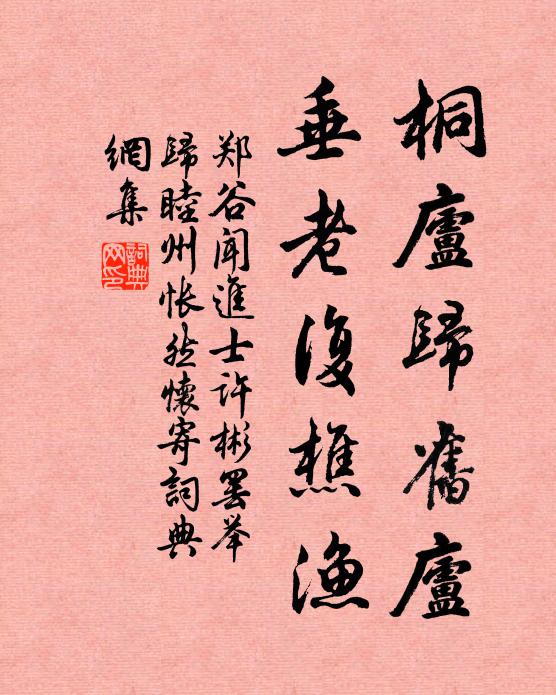 桐廬歸舊廬
垂老復樵漁
郑谷闻進士许彬罢举
歸睦州怅然懷寄詞典
網集
詞典
网印